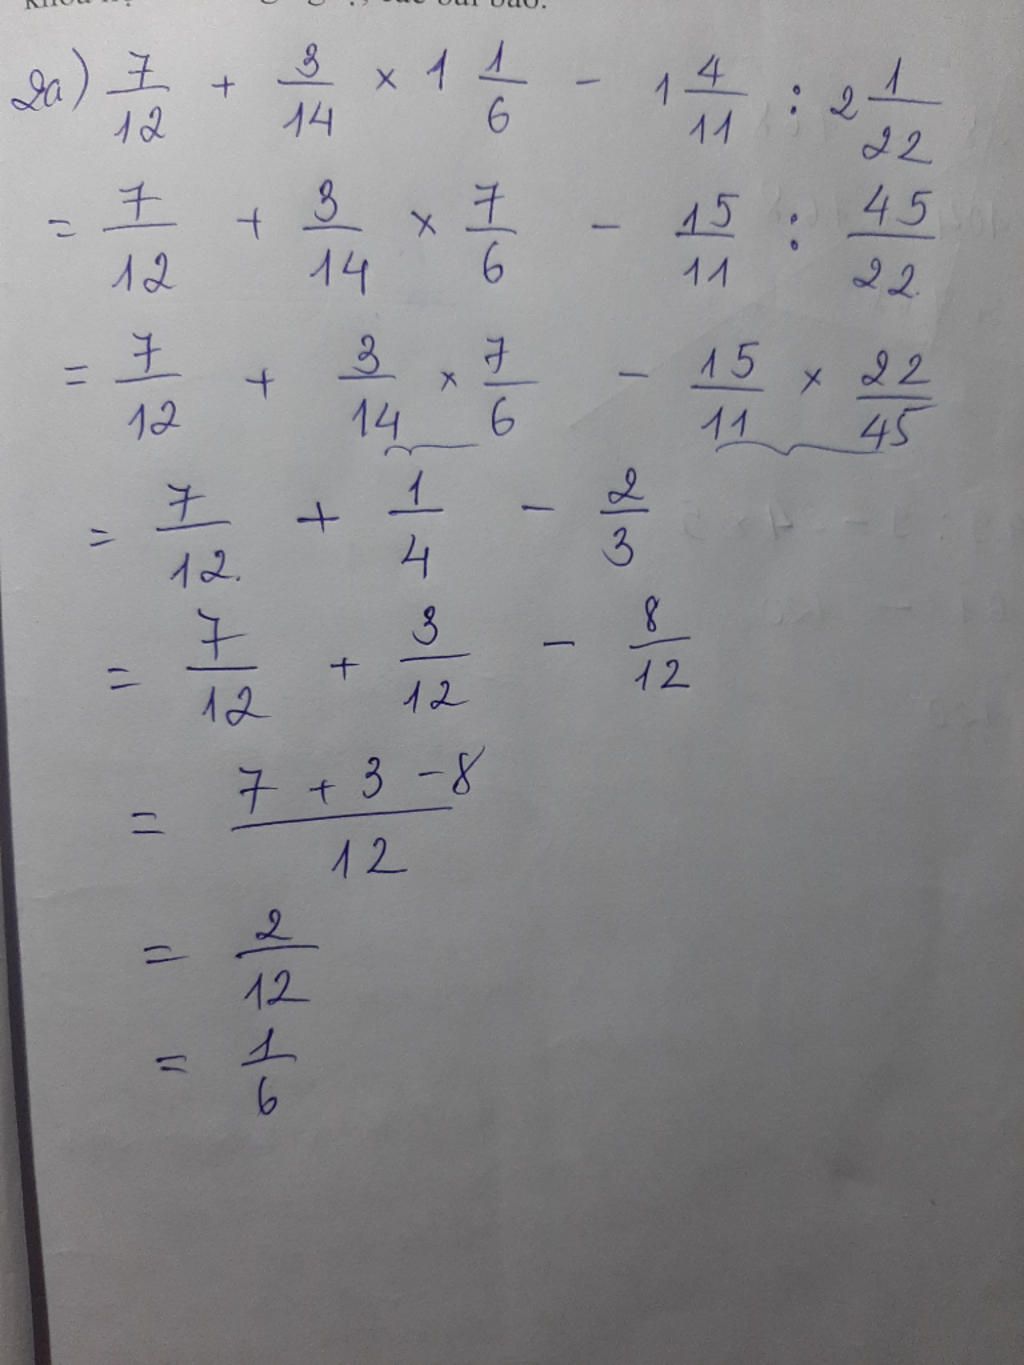 các bài báo.
2a) 7/12 + 3/14 × 1 1/6 - 1 4/11 : 2 1/22
= 7/12 + 3/14 × 7/6 - 15/11 : 45/22
= 7/12 + 3/14 × 7/6 - 15/11 × 22/45
= 7/12 + 1/4 - 2/3
= 7/12 + 3/12 - 8/12
= (7 + 3 - 8)/12
= 2/12
= 1/6